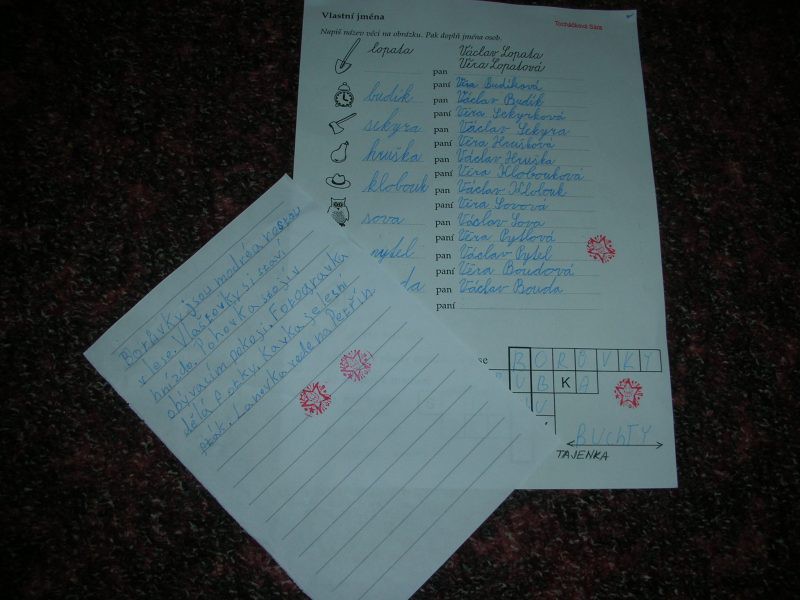 Vlastní jména
Napiš název věci na obrázku. Pak doplň jména osob.
lopata
pan Václav Lopata
paní Věra Lopatová
budík
pan Václav Budík
paní Věra Budíková
sekyra
pan Václav Sekyra
paní Věra Sekyrková
hruška
pan Václav Hruška
paní Věra Hrušková
klobouk
pan Václav Klobouk
paní Věra Klobouková
sova
pan Václav Sova
paní Věra Sovová
pytel
pan Václav Pytel
paní Věra Pytlová
da
pan Václav Bouda
paní Věra Boudová
se
BORŮVKY
UBKA
BUCHTY
TAJENKA
Borůvky jsou modré a rostou
v lese. Vlaštovky si staví
hnízdo. Pohovka stojí v
obývacím pokoji. Fotografka
dělá fotky. Kavka je lesní
pták. Lanovka vede na Petřín.